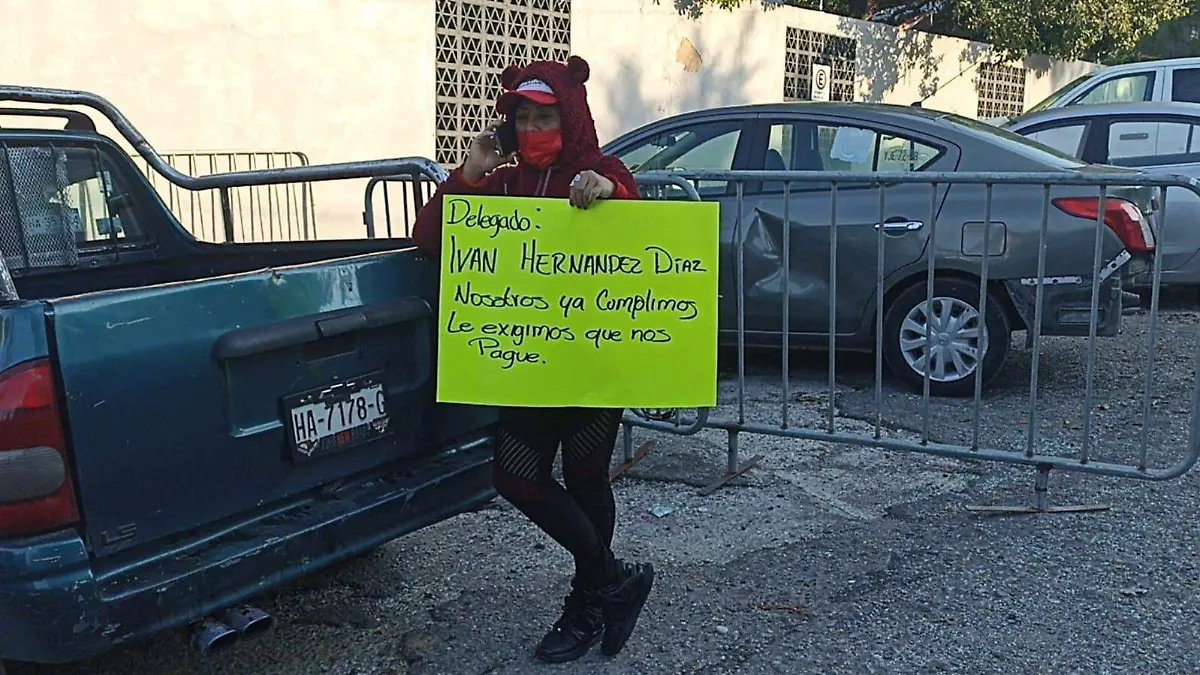 Delegado:
IVAN HERNANDEZ DíAZ
Nosotros ya Cumplimos
Le exigimos que nos
Pague.
HA-7178-G
LS
E